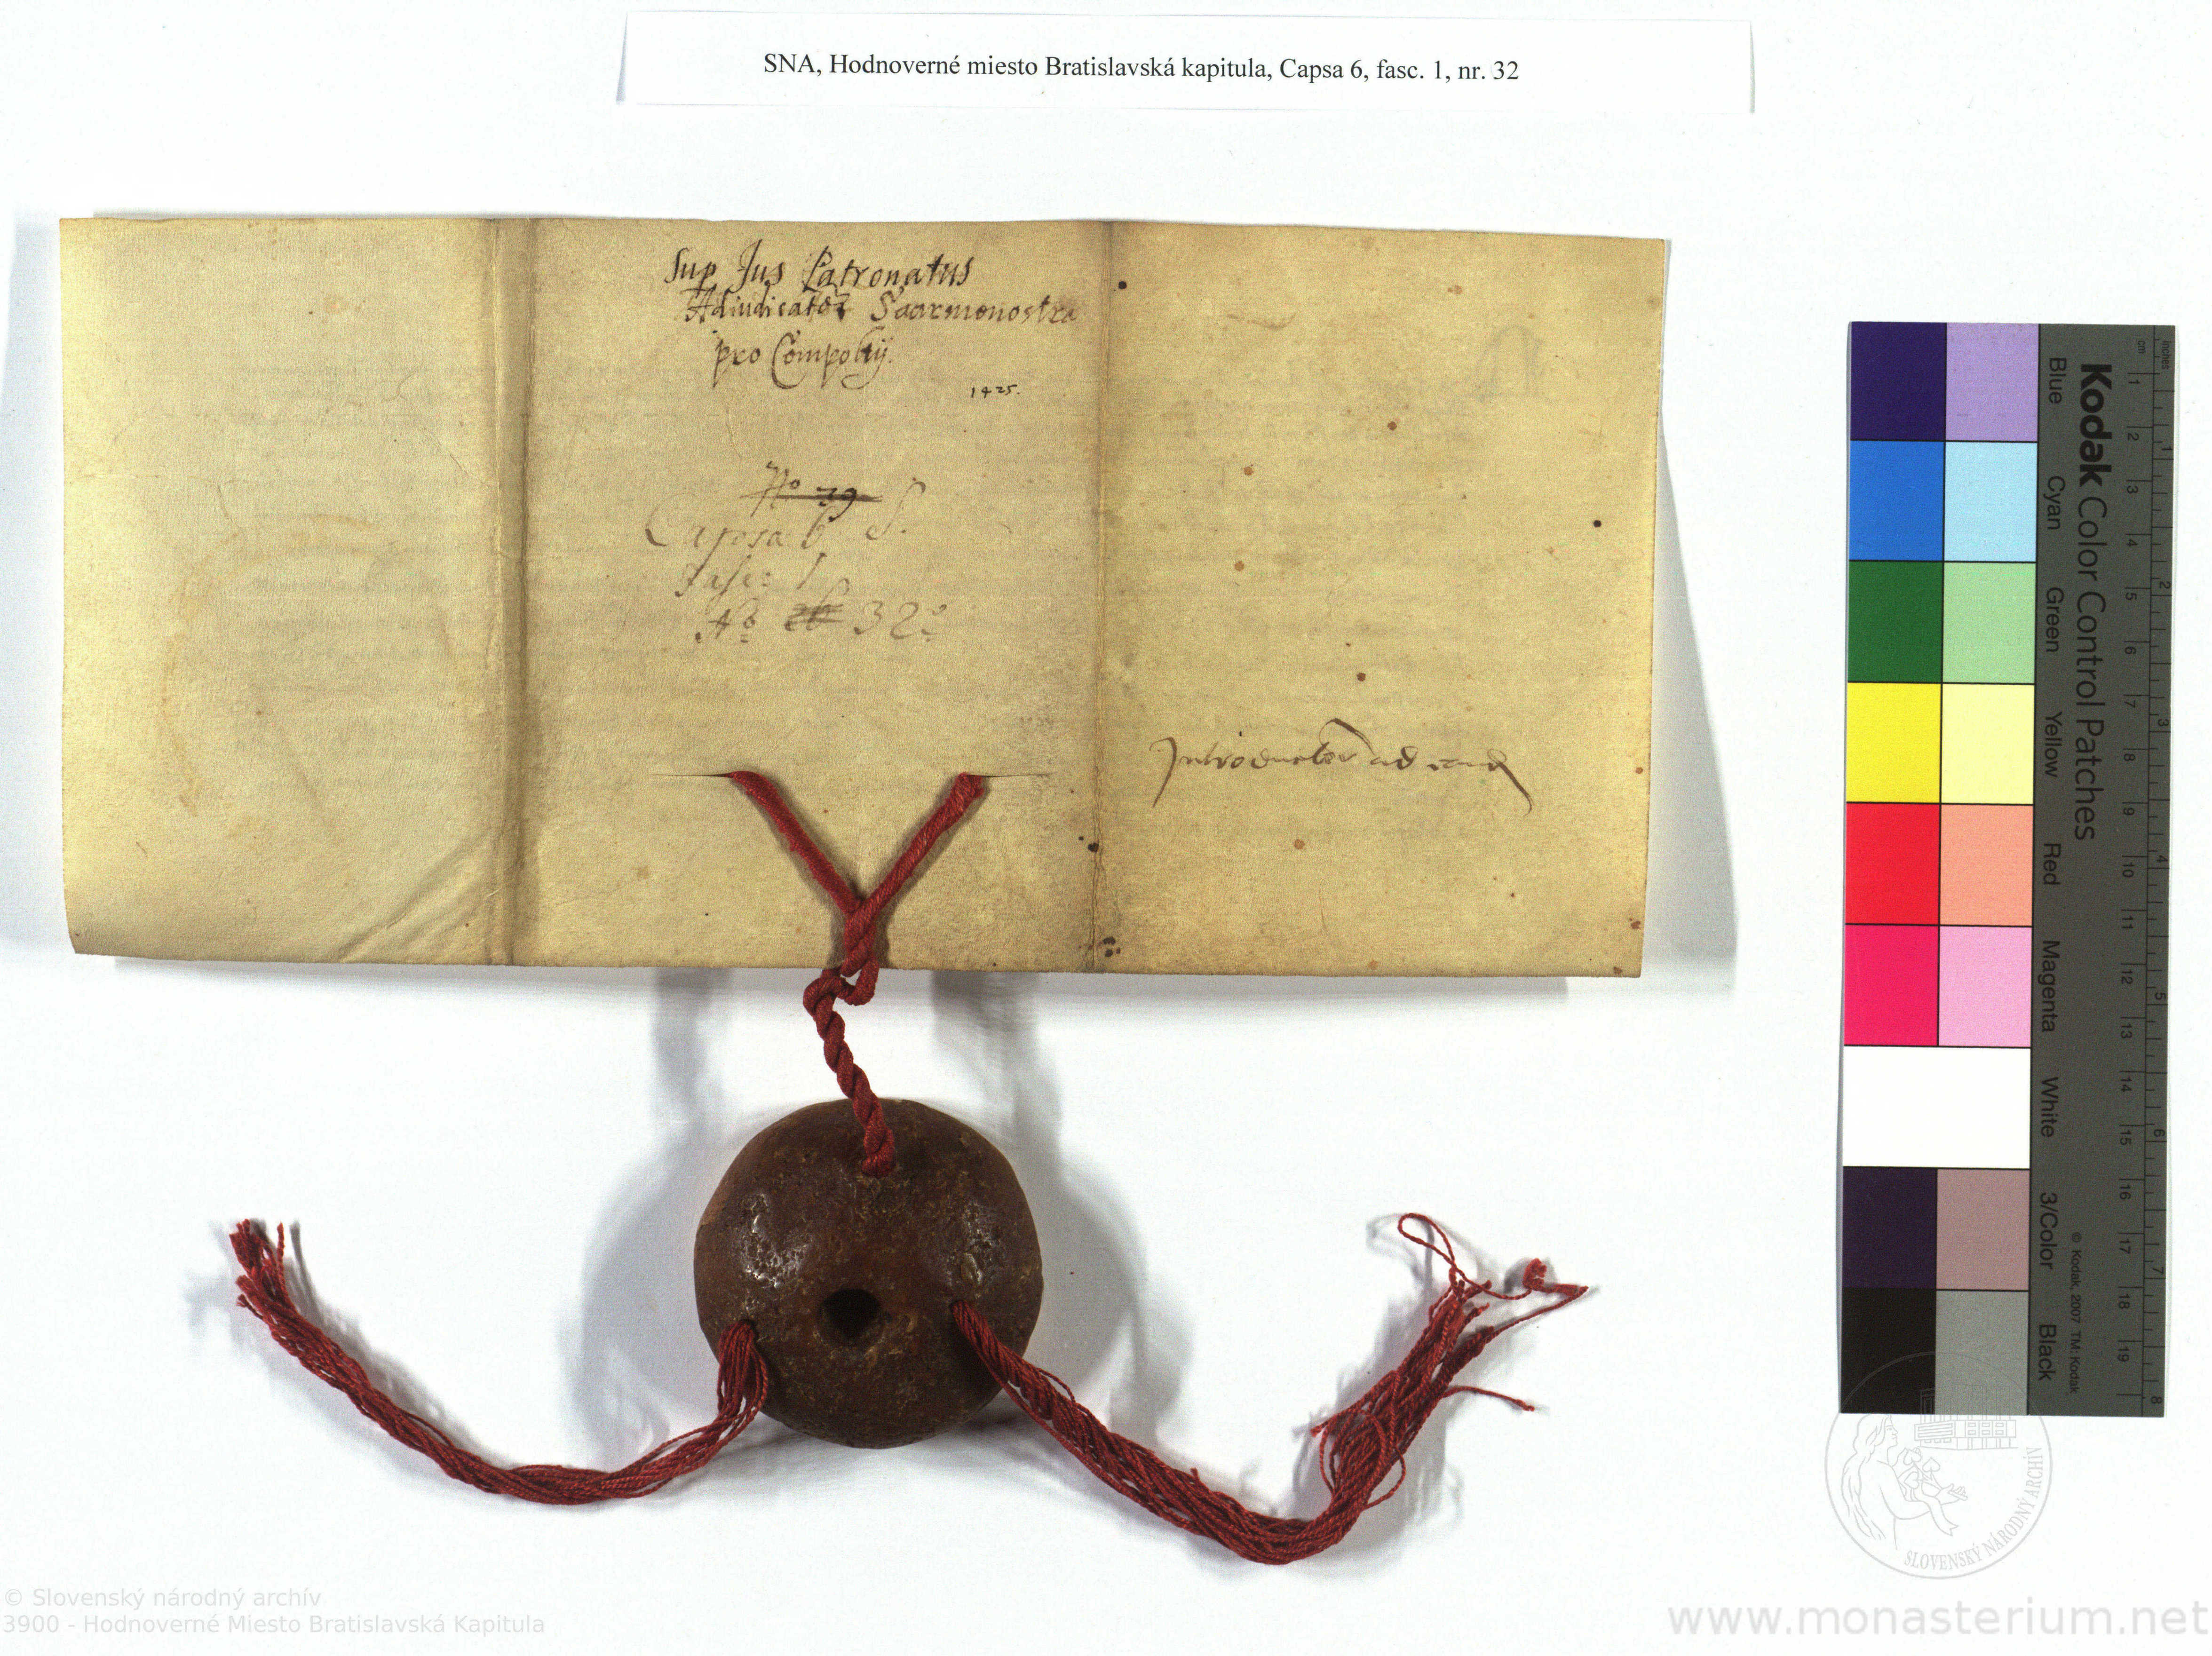 SNA, Hodnoverné miesto Bratislavská kapitula, Capsa 6, fasc. 1, nr. 32
Sup Jus Patronatus
Saarmonostra
pro
1425.
No 79
Capsa 6 S.
Fasc: 1
No 26 32
ad
Kodak Color Control Patches
Blue Cyan Green Yellow Red Magenta White 3/Color Black
© Kodak, 2007 TM: Kodak
cm 1 2 3 4 5 6 7 8 9 10 11 12 13 14 15 16 17 18 19
inches 1 2 3 4 5 6 7 8
SLOVENSKÝ NÁRODNÝ ARCHÍV
© Slovenský národný archív
3900 - Hodnoverné Miesto Bratislavská Kapitula
www.monasterium.net